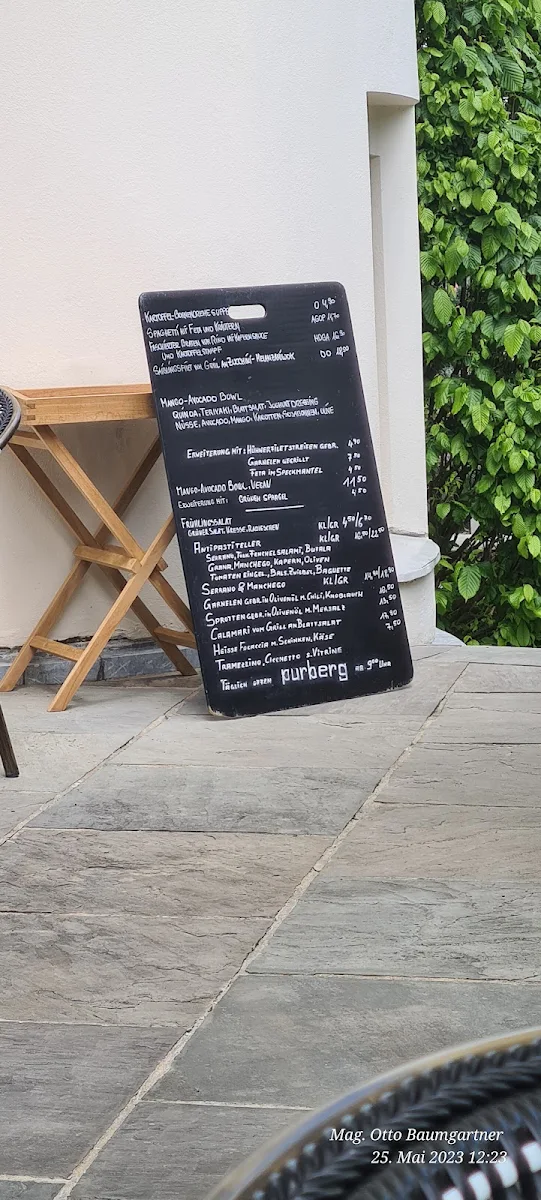 KARTOFFEL- CREMESUPPE O 4,90
SPAGHETTI MIT FETA UND KRÄUTERN AGOF
BRATEN VOM RIND MIT HOGA
UND KARTOFFELSTAMPF
VOM GRILL AN ZUCCHINI- DO
MANGO-AVOCADO BOWL
QUINOA, TERIYAKI, BLATTSALAT, JOGHURTDRESSING
NÜSSE, AVOCADO, MANGO, KAROTTEN,
ERWEITERUNG MIT: HÜHNERFILETSTREIFEN GEBR. 4,90
GARNELEN GEGRILLT
FETA IM SPECKMANTEL
MANGO-AVOCADO BOWL, VEGAN 11,50
ERWEITERUNG MIT: GRÜNEN SPARGEL 4,50
FRÜHLINGSALAT KL/GR
GRÜNER SALAT, KRESSE, RADIESCHEN
ANTIPASTITELLER KL/GR
SERRANO, FENCHELSALAMI, BUFALA
GRANA, MANCHEGO, KAPERN, OLIVEN
TOMATEN EINGEL., BALS. ZWIEBEL, BAGUETTE
SERRANO & MANCHEGO KL/GR
GARNELEN GEBR. IN OLIVENÖL M. CHILI, KNOBLAUCH
SPROTTEN GEBR. IN OLIVENÖL M. MEERSALZ
CALAMARI VOM GRILL AN BLATTSALAT
HEISSE FOCACCIA M. SCHINKEN, KÄSE
TRAMEZZINO, CICCHETTO S. VITRINE 7,50
TÄGLICH OFFEN purberg AB 9⁰⁰ UHR
Mag. Otto Baumgartner
25. Mai 2023 12:23